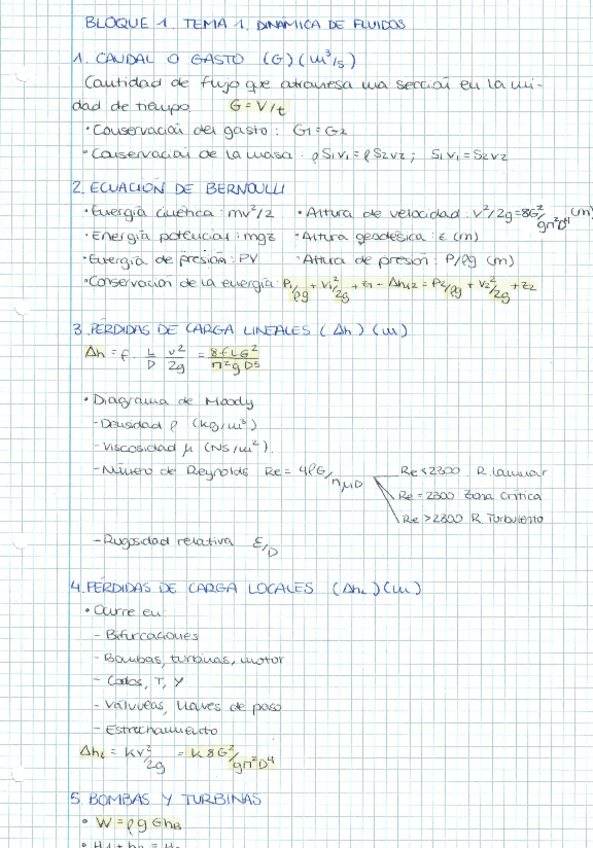 BLOQUE 1. TEMA 1. DINAMICA DE FLUIDOS
1. CAUDAL O GASTO (G) (m³/s)
Cantidad de flujo que atraviesa una sección en la uni-
dad de tiempo. G = V/t
• Conservación del gasto: G1 = G2
• Conservación de la masa: ρS1V1 = ρS2V2; S1V1 = S2V2
2. ECUACIÓN DE BERNOULLI
• Energía cinética: mv²/2 • Altura de velocidad: v²/2g = 8G²/gπ²D⁴ (m)
• Energía potencial: mgz • Altura geodésica: z (m)
• Energía de presión: PV • Altura de presión: P/ρg (m)
• Conservación de la energía: P1/ρg + V1²/2g + z1 - Δh12 = P2/ρg + V2²/2g + z2
3. PÉRDIDAS DE CARGA LINEALES (Δh) (m)
Δh = f · L/D v²/2g = 8fLG²/π²gD⁵
• Diagrama de Moody
- Densidad ρ (kg/m³)
- Viscosidad μ (NS/m²).
- Número de Reynolds Re = 4ρG/πμD Re < 2300 R laminar
Re = 2300 Zona Crítica
Re > 2300 R Turbulento
- Rugosidad relativa ε/D
4. PÉRDIDAS DE CARGA LOCALES (ΔhL) (m)
• Ocurre en:
- Bifurcaciones
- Bombas, turbinas, motor
- Codos, T, Y
- Válvulas, llaves de paso
- Estrechamiento
ΔhL = kv²/2g = k 8G²/gπ²D⁴
5. BOMBAS Y TURBINAS
• W = ρgGhB